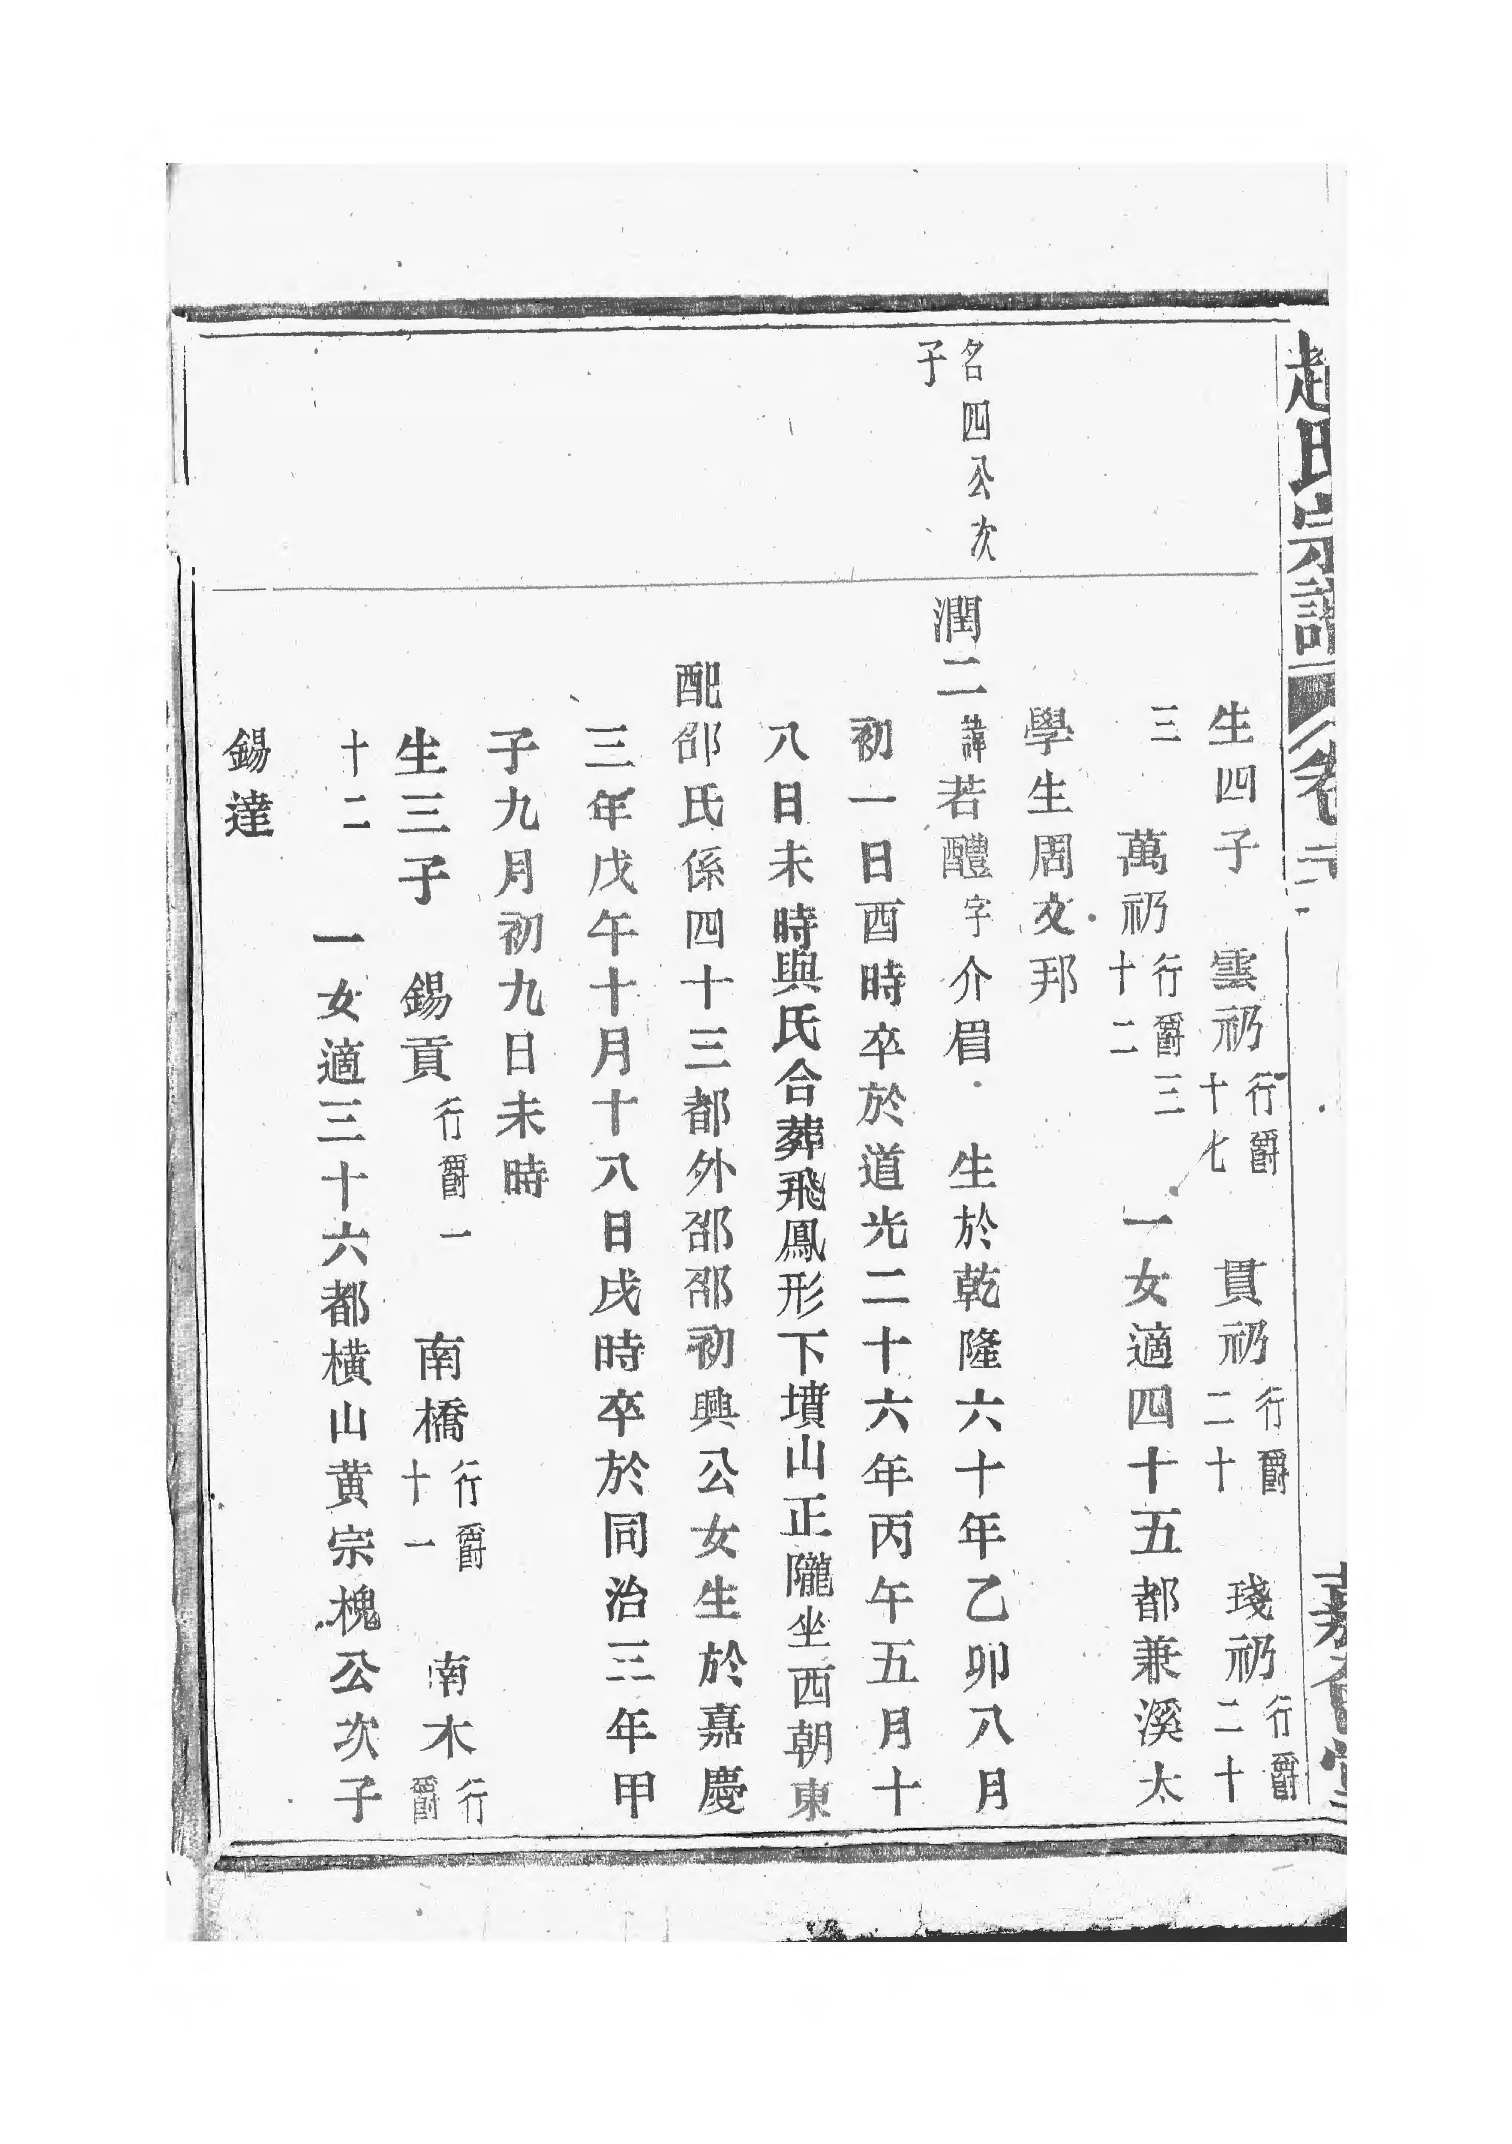 趙氏宗譜 卷二
生四子 雲礽行爵十七 貫礽行爵二十 琖礽行爵二十
三 萬礽行爵三十二 一女適四十五都兼溪太
學生周文邦
名四公次子
潤二諱若醴字介眉 生於乾隆六十年乙卯八月
初一日酉時卒於道光二十六年丙午五月十
八日未時與氏合葬飛鳳形下墳山正隴坐西朝東
配邵氏係四十三都外邵邵初興公女生於嘉慶
三年戊午十月十八日戌時卒於同治三年甲
子九月初九日未時
生三子 錫貢行爵一 南橋行爵十一 南木行爵
十二 一女適三十六都橫山黃宗槐公次子
錫達